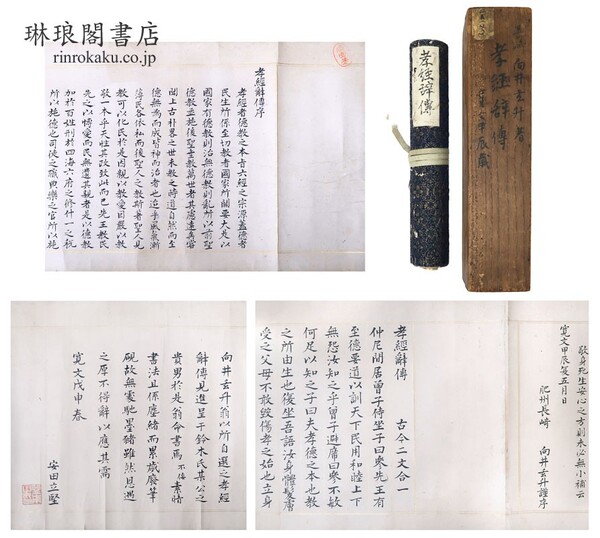 琳琅閣書店
rinrokaku.co.jp
孝經辭傳序
孝經者德教之本旨六經之宗源蓋德者
民生所係至切教者國家所關要大是以
國家有德教則治無德教則亂所以前聖
德教並施後聖立教萬世者其慮遠矣
聞上古朴畧之世未教之時道自然而至
德無為而成皆神而治者也迨乎風氣漸
民各依私而後聖人之教斯著聖人見
教可以化民於是因親以教愛因嚴以教
敬一本乎天性其政致此而已先王教民
先之以博愛而民無遺其親者是以德教
加於百姓刑於四海六府之修什一之稅
所以施德也司徒之職典樂之官所以施
孝經辭傳
向井玄升著
孝經辭傳
甲辰歲
敬身死生安心之方則未必無小補云
寛文甲辰夏五月日
肥州長崎 向井玄升謹序
孝經辭傳 古今二文合一
仲尼間居曾子侍坐子曰參先王有
至德要道以訓天下民用和睦上下
無怨汝知之乎曾子避席曰參不敏
何足以知之子曰夫孝德之本也教
之所由生也復坐吾語汝身體髮膚
受之父母不敢毀傷孝之始也立身
向井玄升翁以所自選之孝經
辭傳見進呈于鈴木氏某公之
貴男於是翁命書焉不侫素惰
書法且係塵緒而累歲廢筆
硯故無窓馳墨豬雖然見遇
之厚不得辭以應其需
寛文戊申春
安田立堅